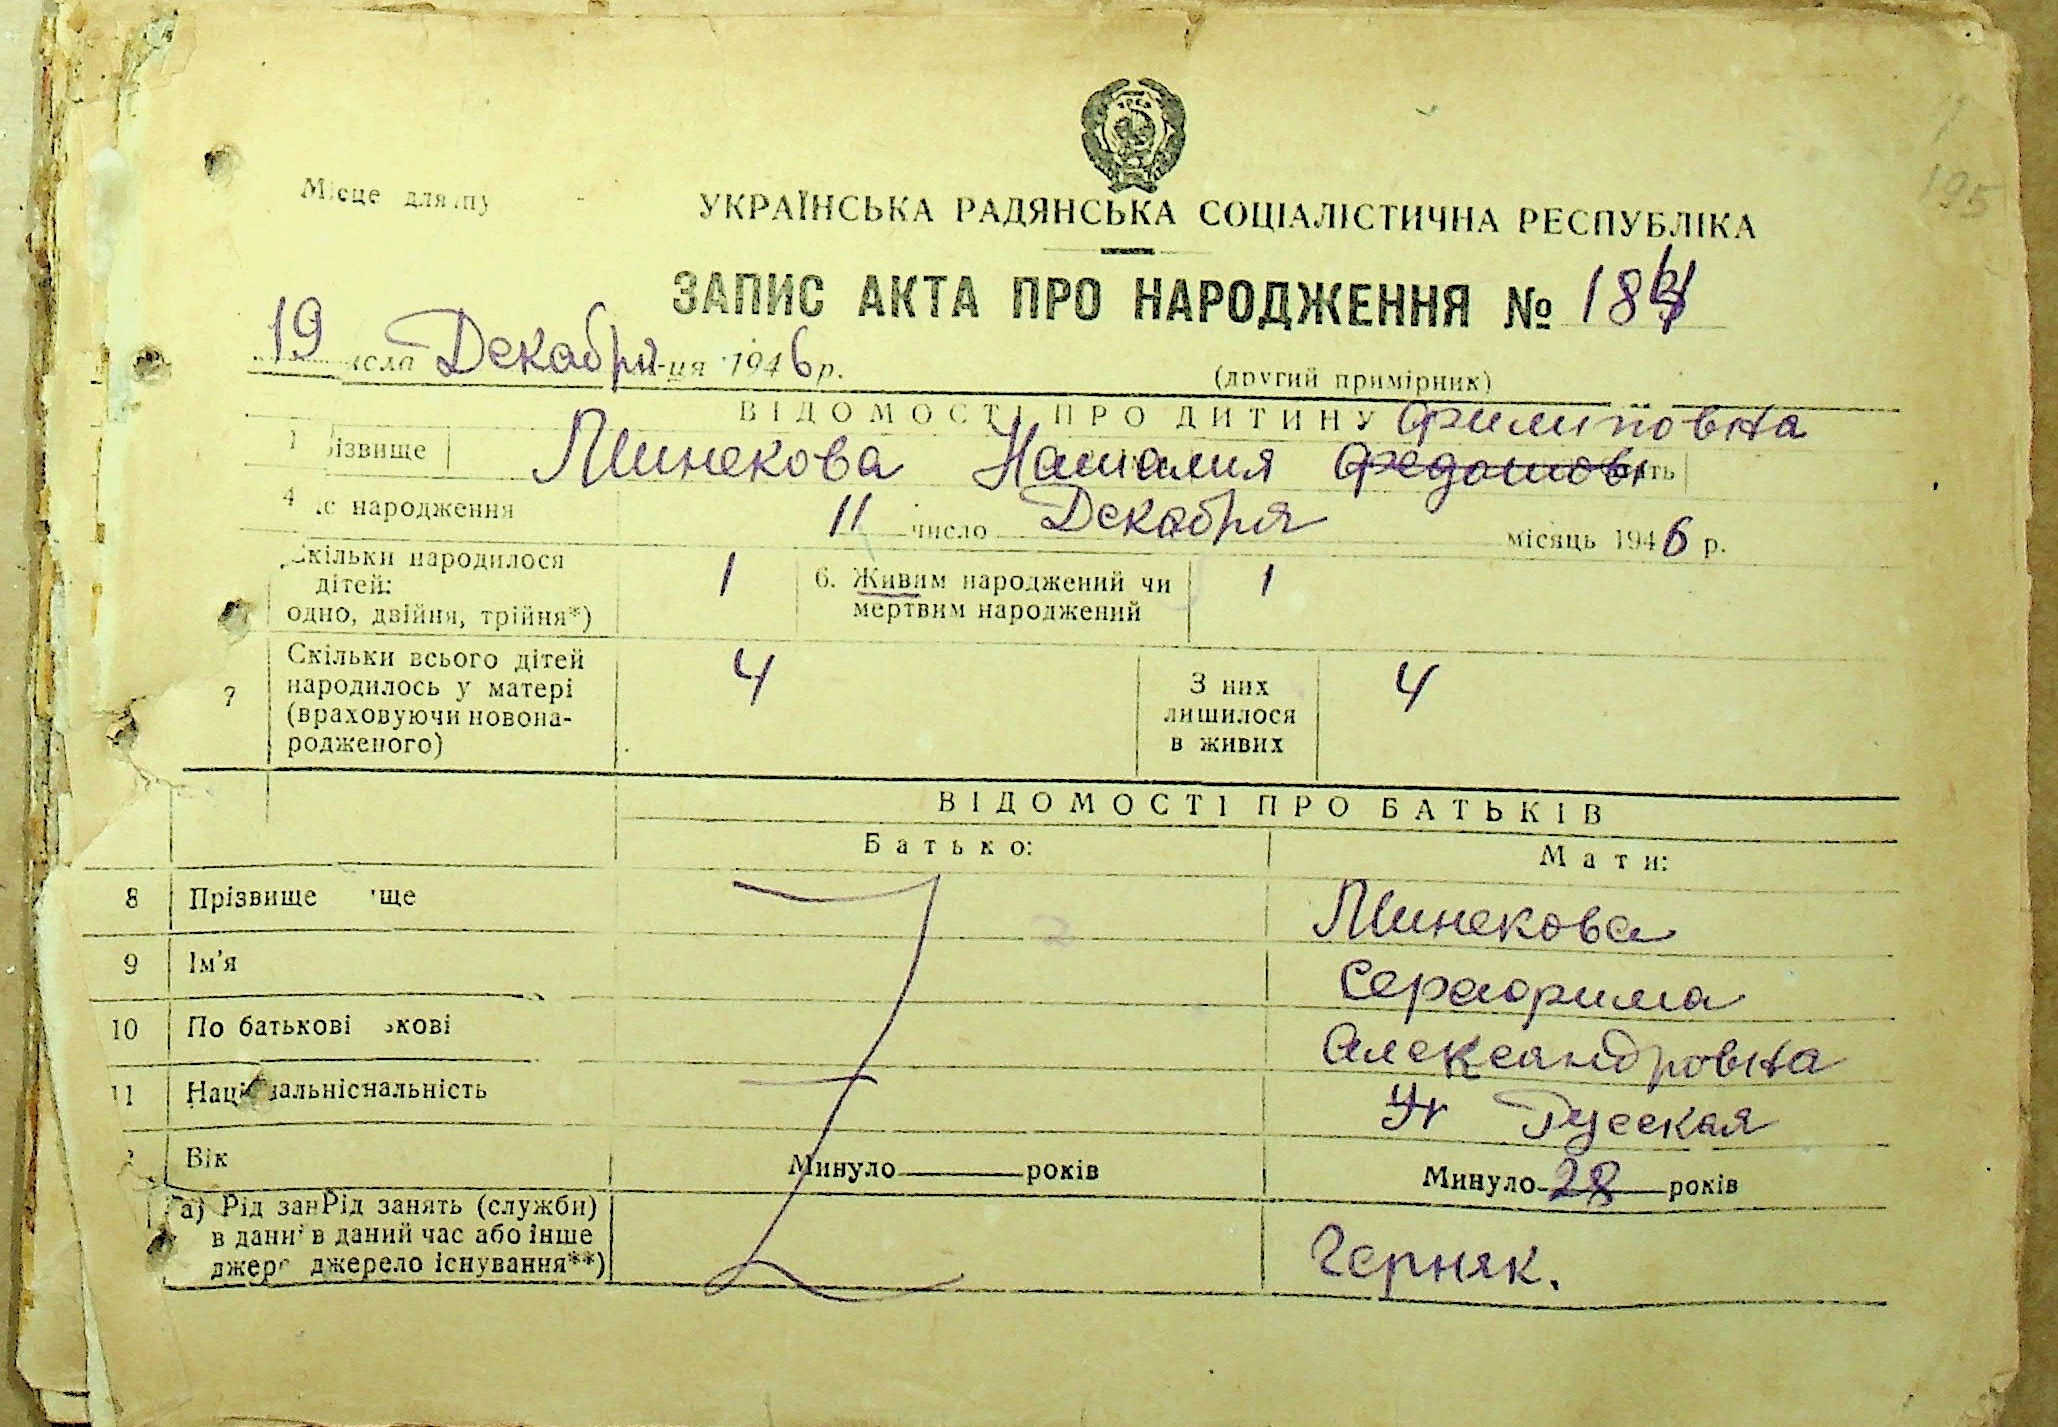 195
Місце для пу
УКРАЇНСЬКА РАДЯНСЬКА СОЦІАЛІСТИЧНА РЕСПУБЛІКА
ЗАПИС АКТА ПРО НАРОДЖЕННЯ № 18
19 исла Декабря -ця 1946 р.
(другий примірник)
ВІДОМОСТІ ПРО ДИТИНУ Филиповна
1 ізвище Минекова Наталия ать
4 с народження 11 число Декабря місяць 1946 р.
Скільки народилося
дітей:
одно, двійня, трійня*)
1
6. Живим народжений чи
мертвим народжений
1
7
Скільки всього дітей
народилось у матері
(враховуючи новона-
родженого)
4
З них
лишилося
в живих
4
ВІДОМОСТІ ПРО БАТЬКІВ
Батько:
Мати:
8 Прізвище ище Минекова
9 Ім'я Серафима
10 По батькові ькові Александровна
11 Націнальніснальність Ук Русская
Вік Минуло років Минуло 28 років
а) Рід занРід занять (служби)
в дани в даний час або інше
джере джерело існування**)
Черняк.